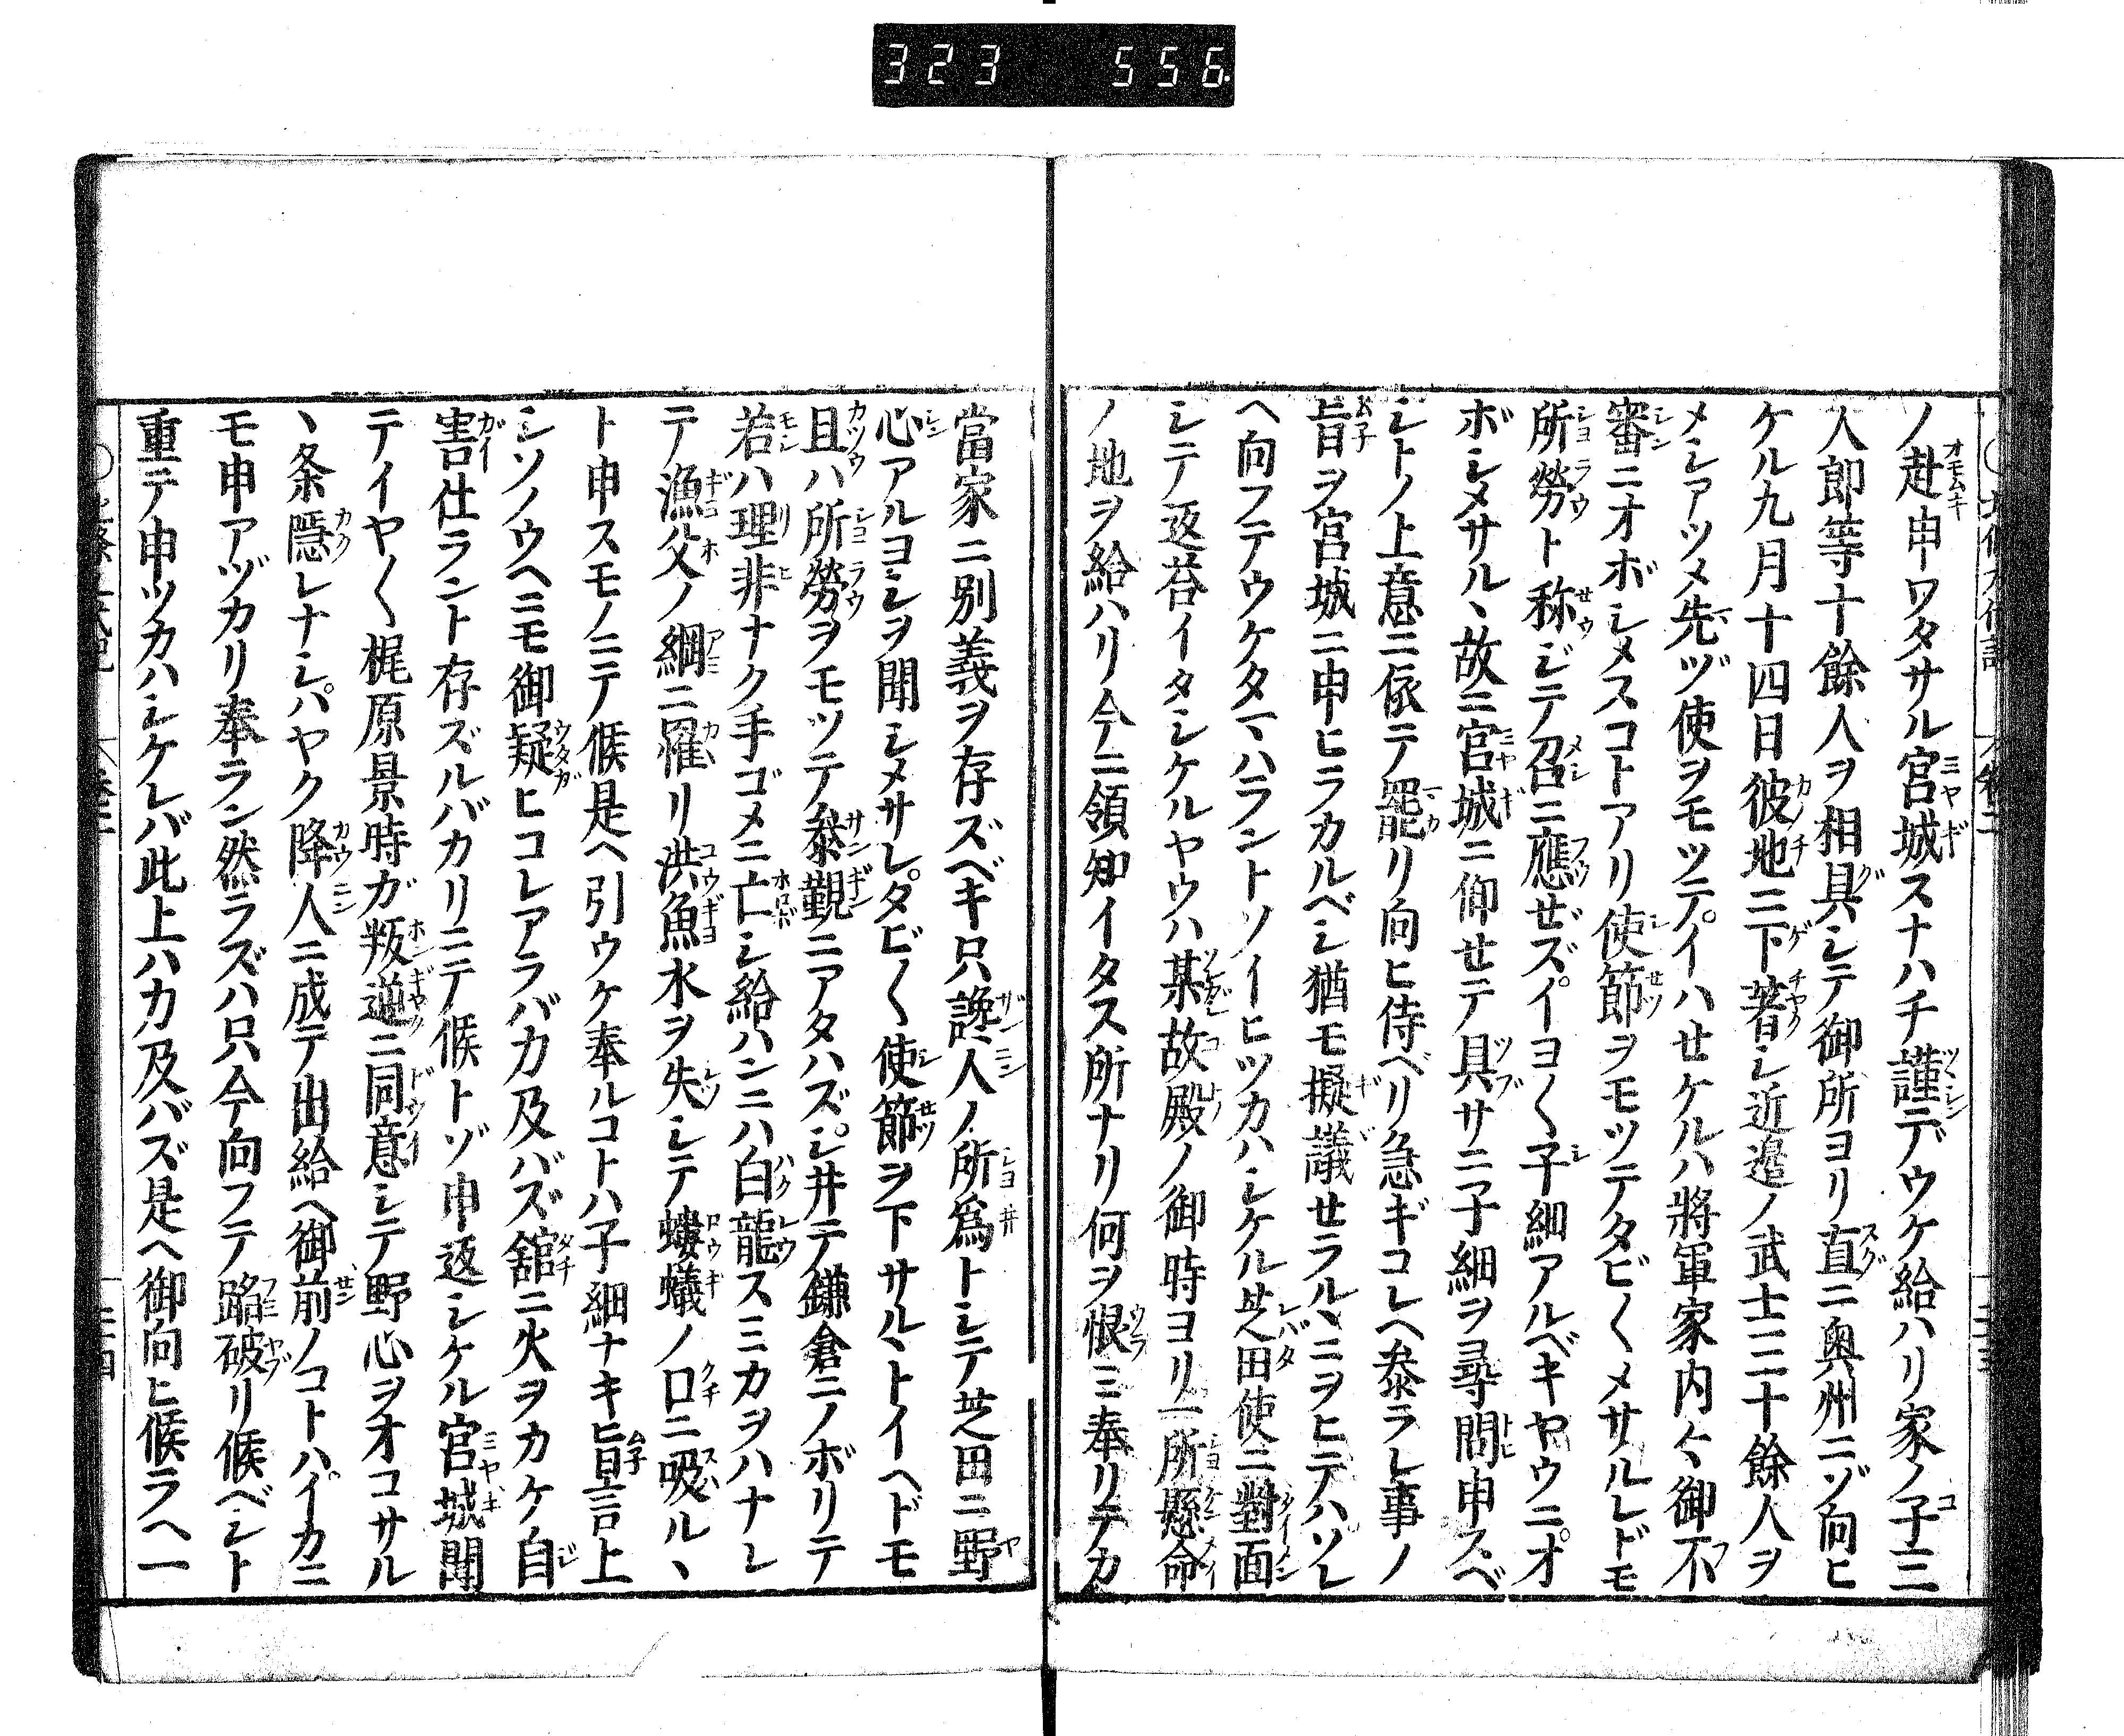 323 556
ノ赴申ワタサル宮城スナハチ謹デウケ給ハリ家ノ子三
人郎等十餘人ヲ相具シテ御所ヨリ直ニ奥州ニゾ向ヒ
ケル九月十四日彼地ニ下著シ近邉ノ武士三十餘人ヲ
メシアツメ先ヅ使ヲモツテイハせケルハ將軍家内々御不
審ニオボシメスコトアリ使節ヲモツテタビ〱メサルレドモ
所勞ト称ジテ召ニ應ぜズイヨ〱子細アルベキヤウニオ
ボシメサルヽ故ニ宮城ニ仰せテ具サニ子細ヲ尋問申スベ
シトノ上意ニ依テ罷リ向ヒ侍ベリ急ギコレヘ参ラレ事ノ
旨ヲ宮城ニ申ヒラカルベシ猶モ擬議せラルヽニヲヒテハソレ
ヘ向フテウケタマハラントソイヒツカハシケル芝田使ニ對面
シテ返荅イタシケルヤウハ某故殿ノ御時ヨリ一所懸命
ノ地ヲ給ハリ今ニ領知イタス所ナリ何ヲ恨ミ奉リテカ
當家ニ別義ヲ存ズベキ只讒人ノ所爲トシテ芝田ニ野
心アルヨシヲ聞シメサレタビ〱使節ヲ下サルヽトイヘドモ
且ハ所勞ヲモツテ参覲ニアタハズシ井テ鎌倉ニノボリテ
若ハ理非ナク手ゴメニ亡シ給ハンニハ白龍スミカヲハナレ
テ漁父ノ綱ニ罹リ洪魚水ヲ失シテ螻蟻ノ口ニ吸ルヽ
ト申スモノニテ候是ヘ引ウケ奉ルコトハ子細ナキヒ旨言上
シソノウヘニモ御疑ヒコレアラバカ及バズ舘ニ火ヲカケ自
害仕ラント存ズルバカリニテ候トゾ申返シケル宮城聞
テイヤ〱梶原景時ガ叛逆ニ同意シテ野心ヲオコサル
ヽ条隠レナシハヤク降人ニ成テ出給ヘ御前ノコトハイカニ
モ申アヅカリ奉ラン然ラズハ只今向フテ蹈破リ候ベシト
重テ申ツカハシケレバ此上ハカ及バズ是ヘ御向ヒ候ラヘ一